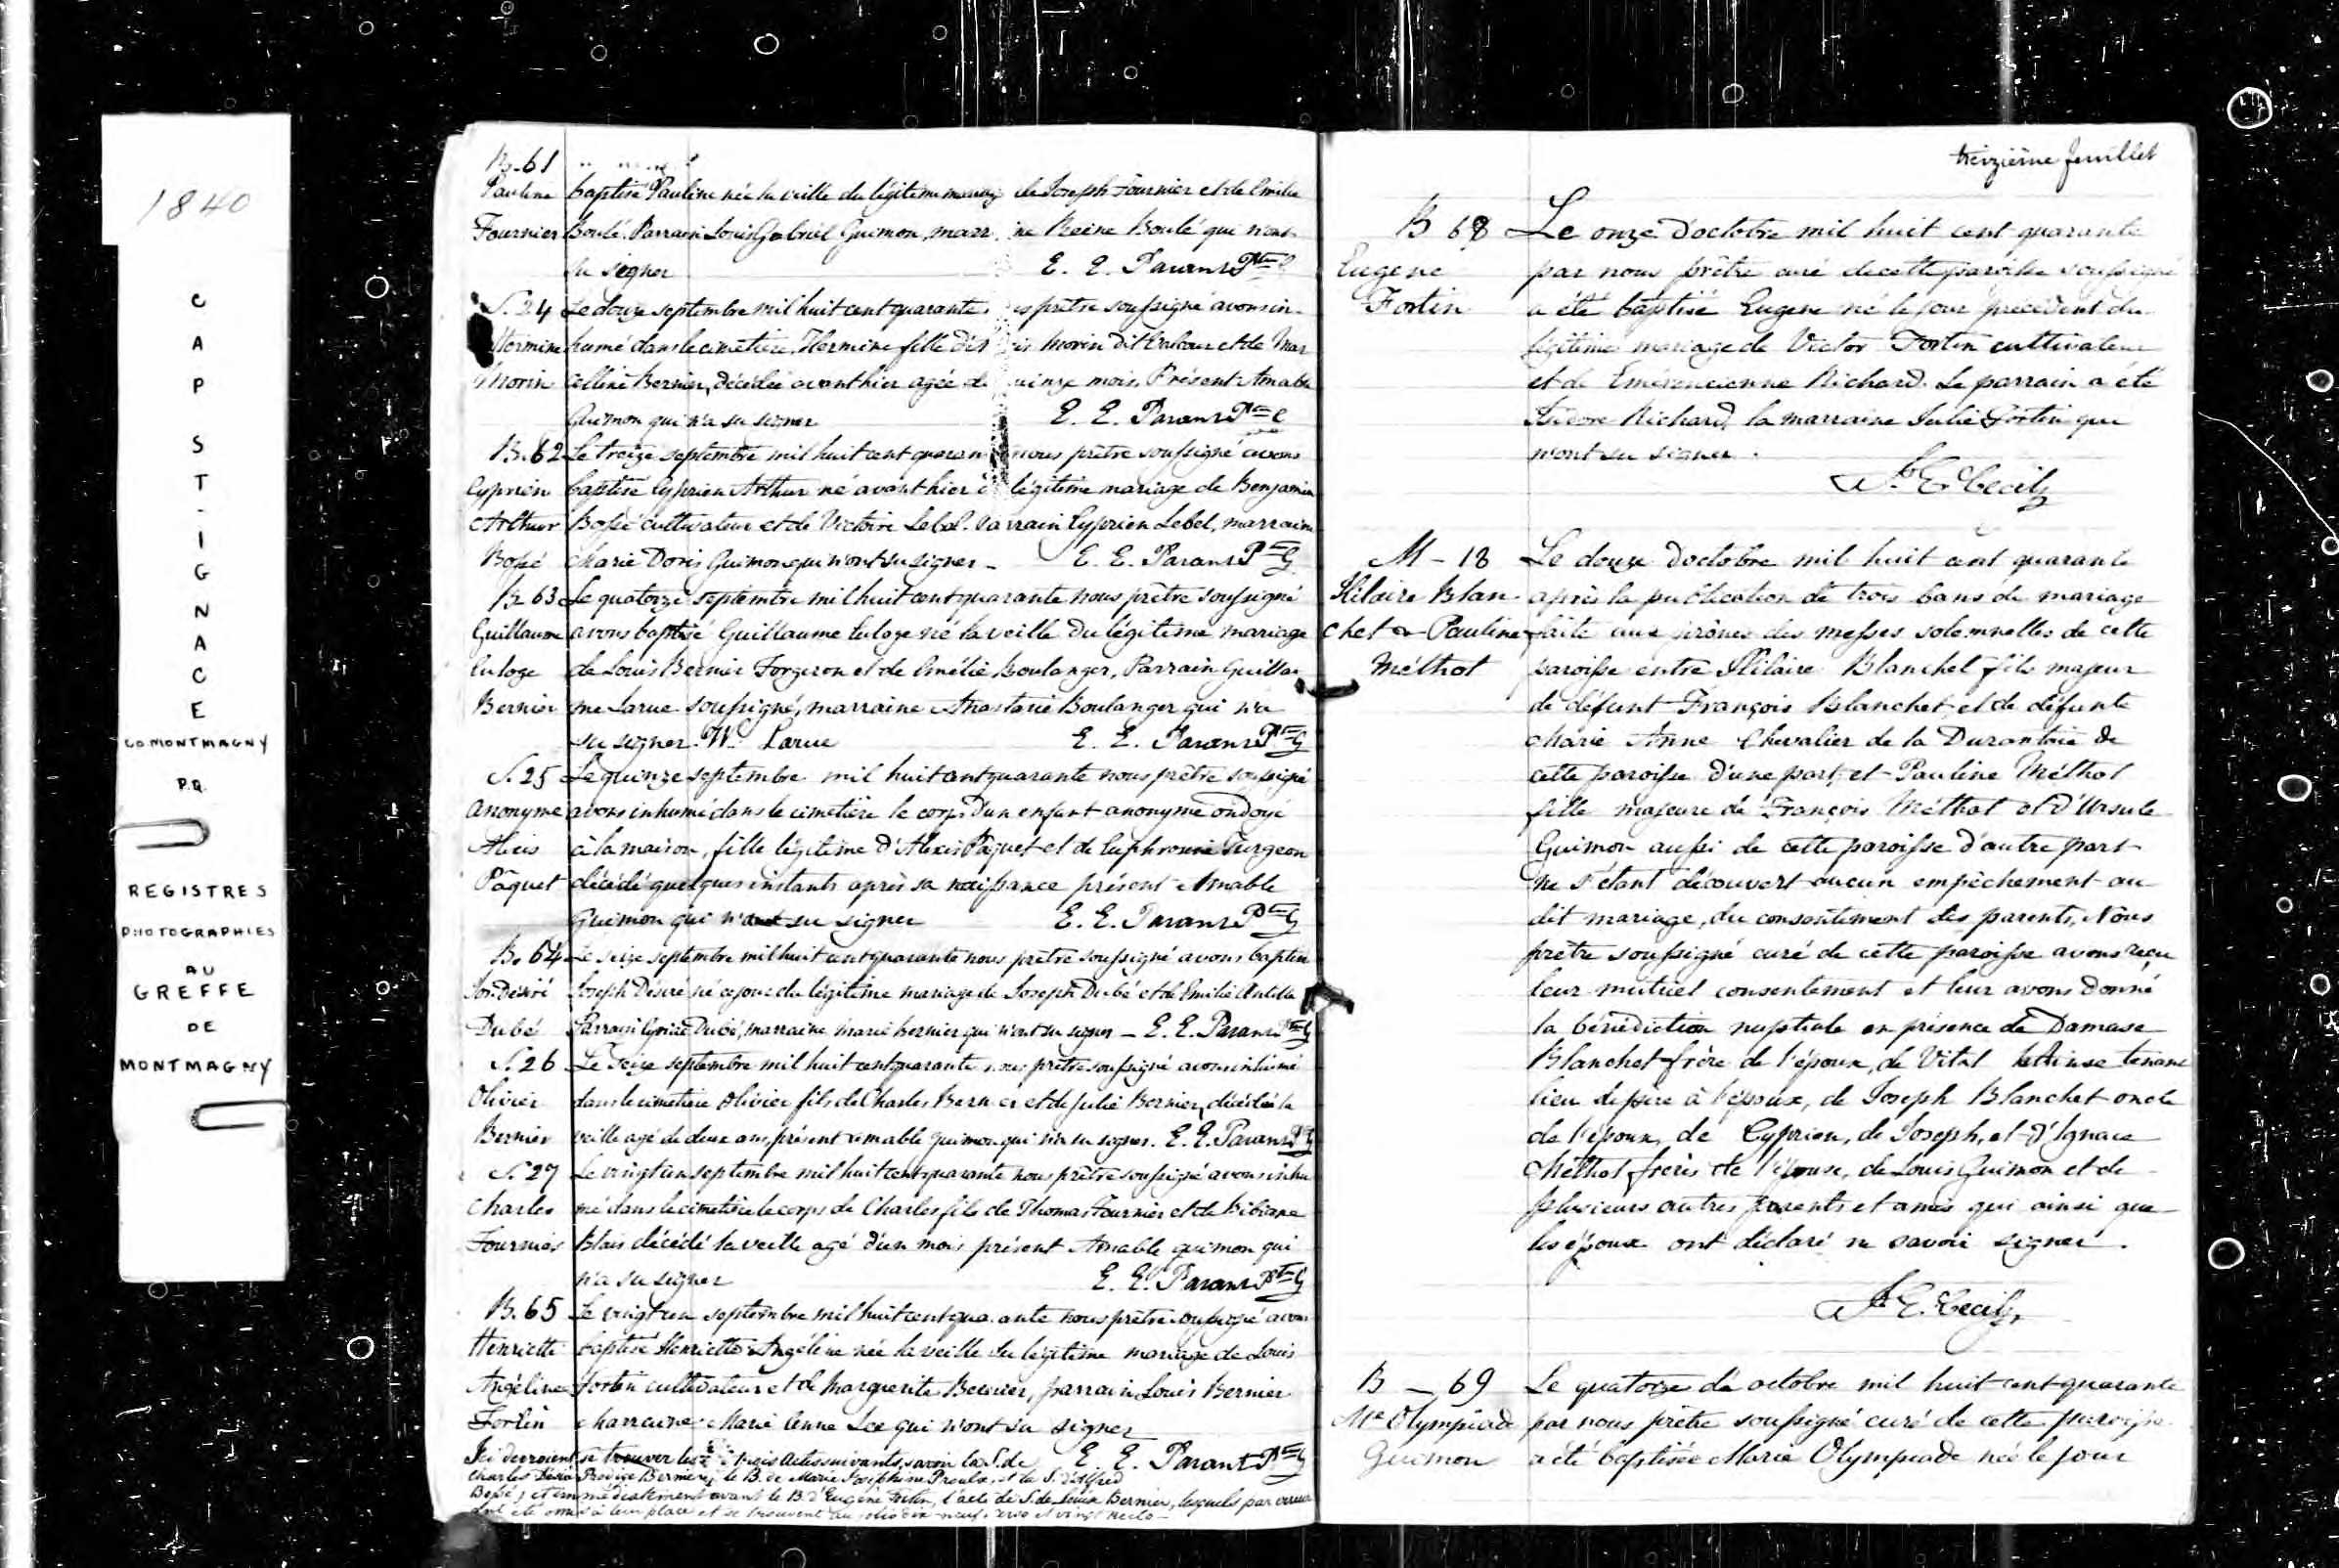 1840
CAP ST-IGNACE
CO MONTMAGNY
P.Q.
REGISTRES
PHOTOGRAPHIES
AU
GREFFE
DE
MONTMAGNY
B.61
Pauline baptisé Pauline née la veille du légitime mariag de Joseph Fournier et de Emilie
Fournier Boulé. Parrain Louis Gabriel Guimon, marr ne Reine Boulé qui n'ont
su signer E. E. Parant Ptre
S.24 Le douze septembre mil huit cent quarante us prêtre soussigné avons in-
Hermine humé dans le cimetière Hermine fille d' is Morin dit Valcour et de Mar
Morin celline Bernier, décédée avant hier agée de uinze mois. Présent Amable
Guimon qui n'a su signer E. E. Parant Ptre
B.62 Le treize septembre mil huit cent quaran nous prêtre soussigné avons
Cyprien baptisé Cyprien Arthur né avant hier légitime mariage de Benjamin
Arthur Bossé cultivateur et de Victoire Lebel. Parrain Cyprien Lebel, marraine
Bossé Marie Doris Guimon qui n'ont su signer - E. E. Parant Ptre
B 63 Le quatorze septembre mil huit cent quarante nous prêtre soussigné
Guillaume avons baptisé Guillaume Euloge né la veille du légitime mariage
Euloge de Louis Bernier Forgeron et de Emélie Boulanger, Parrain Guillau
Bernier me Larue soussigné, marraine Anastasie Boulanger qui n'a
su signer. Wm Larue E. E. Parant Ptre
S.25 Le quinze septembre mil huit cent quarante nous prêtre soussigné
Anonyme avons inhumé dans le cimetière le corps d'un enfant anonyme ondoyé
Alexis à la maison, fille légitime d'Alexis Pâquet et de Euphrosine Turgeon
Pâquet décédé quelques instants après sa naissance présent Amable
Guimon qui n'a su signer E. E. Parant Ptre
B.64 Le seize septembre mil huit cent quarante nous prêtre soussigné avons baptisé
Jos. Désiré Joseph Désiré né ce jour du légitime mariage de Joseph Dubé et de Emilie
Dubé Parrain Dubé, marraine Marie Bernier qui n'ont su signer - E. E. Parant Ptre
S.26 Le seize septembre mil huit cent quarante nous prêtre soussigné avons inhumé
Olivier dans le cimetière Olivier fils de Charles Bernier et de Julie Bernier, décédé la
Bernier veille agé de deux ans, présent Amable Guimon qui n'a su signer. E. E. Parant Ptre
S.27 Le vingt un septembre mil huit cent quarante nous prêtre soussigné avons inhu
Charles mé dans le cimetière le corps de Charles fils de Thomas Fournier et de Bibiane
Fournier Blais décédé la veille agé d'un mois présent Amable Guimon qui
n'a su signer E. E. Parant Ptre
B.65 Le vingt un septembre mil huit cent qua ante nous prêtre soussigné avons
Henriette baptisé Henriette Angéline née la veille du légitime mariage de Louis
Angéline Fortin cultivateur et de Marguerite Bernier, parrain Louis Bernier
Fortin Marraine Marie Anne Lee qui n'ont su signer
E. E. Parant Ptre
Ici devraient se trouver les trois actes suivants, savoir la S. de
Charles Bernier, le B. de Marie Joséphine Proulx, et la S. d'Alfred
Bossé; et immédiatement avant le B. d'Eugène Fortin, l'acte de S. de Louise Bernier, lesquels par erreur
ont été omis à leur place et se trouvent au folio dix-neuf verso et vingt recto -
treizième feuillet
B 68 Le onze d'octobre mil huit cent quarante
Eugene par nous prêtre curé de cette paroisse soussigné
Fortin a été baptisé Eugene né le jour précédent du
légitime mariage de Victor Fortin cultivateur
et de Emerencienne Richard. Le parrain a été
Isidore Richard, la marraine Julie Fortin qui
n'ont su signer.
Js E. Cecil
M - 18 Le douze d'octobre mil huit cent quarante
Hilaire Blan- après la publication de trois bans de mariage
chet & Pauline faite aux prônes des messes solemnelles de cette
Méthot paroisse entre Hilaire Blanchet fils majeur
de défunt François Blanchet et de défunte
Marie Anne Chevalier de la Durantaie de
cette paroisse d'une part, et Pauline Méthot
fille majeure de François Méthot et d'Ursule
Guimon aussi de cette paroisse d'autre part
ne s'étant découvert aucun empêchement au
dit mariage, du consentiment des parents, Nous
prêtre soussigné curé de cette paroisse avons reçu
leur mutuel consentement et leur avons donné
la bénédiction nuptiale en présence de Damase
Blanchet frère de l'époux, de Vital tenant
lieu de père à l'époux, de Joseph Blanchet oncle
de l'époux, de Cyprien, de Joseph, et d'Ignace
Méthot frères de l'épouse, de Louis Guimon et de
plusieurs autres parents et amis qui ainsi que
les époux ont déclaré ne savoir signer.
Js E. Cecil
B - 69 Le quatorze de octobre mil huit cent quarante
Me Olympiade par nous prêtre soussigné curé de cette paroisse
Guimon a été baptisée Marie Olympiade née le jour